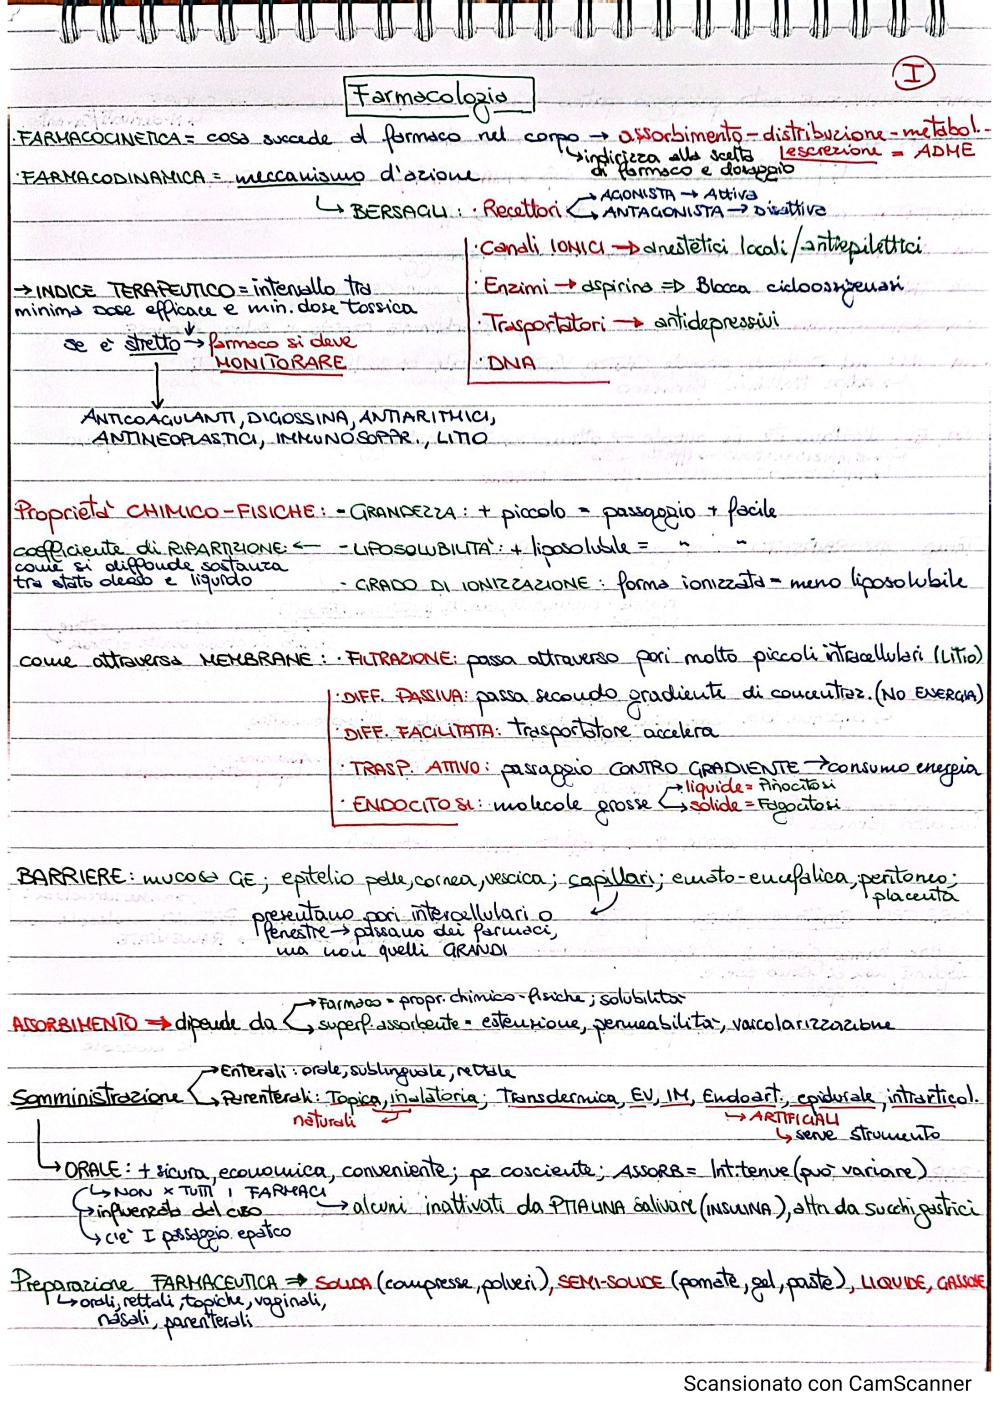 I
Farmacologia
·FARMACOCINETICA = cosa succede al farmaco nel corpo → assorbimento-distribuzione-metabol.-
↳indirizza alla scelta di farmaco e dosaggio
escrezione = ADME
·FARMACODINAMICA = meccanismo d'azione
↳ BERSAGLI: ·Recettori
→ AGONISTA → Attiva
→ ANTAGONISTA → Disattiva
·Canali IONICI → anestetici locali/antiepilettici
·Enzimi → aspirina => Blocca cicloossigenasi
·Trasportatori → antidepressivi
·DNA
→ INDICE TERAPEUTICO = intervallo tra
minima dose efficace e min. dose tossica
se è stretto → farmaco si deve
MONITORARE
ANTICOAGULANTI, DIGOSSINA, ANTIARITMICI,
ANTINEOPLASTICI, IMMUNOSOPPR., LITIO
Proprietà CHIMICO-FISICHE: - GRANDEZZA: + piccolo = passaggio + facile
coefficiente di RIPARTIZIONE: ← - LIPOSOLUBILITÀ: + liposolubile = " "
come si diffonde sostanza
tra stato oleoso e liquido
- GRADO DI IONIZZAZIONE: forma ionizzata = meno liposolubile
come attraversa MEMBRANE: ·FILTRAZIONE: passa attraverso pori molto piccoli intracellulari (LITIO)
·DIFF. PASSIVA: passa secondo gradiente di concentraz. (NO ENERGIA)
·DIFF. FACILITATA: trasportatore accelera
·TRASP. ATTIVO: passaggio CONTRO GRADIENTE → consumo energia
·ENDOCITOSI: molecole grosse
→ liquide = Pinocitosi
→ solide = Fagocitosi
BARRIERE: mucosa GE; epitelio pelle, cornea, vescica; capillari; emato-encefalica, peritoneo;
placenta
presentano pori intercellulari o
fenestre → passano dei farmaci,
ma non quelli GRANDI
ASSORBIMENTO => dipende da
→ Farmaco = propr. chimico-fisiche; solubilità
→ superf. assorbente = estensione, permeabilità, vascolarizzazione
Somministrazione
→ Enterali: orale, sublinguale, rettale
→ Parenterali: Topica, inalatoria; Transdermica, EV, IM, Endoart., epidurale, intrarticol.
naturali
→ ARTIFICIALI
↳ serve strumento
↳ ORALE: + sicura, economica, conveniente; pz cosciente; ASSORB = Int. tenue (può variare)
↳ NON x TUTTI I FARMACI
→ influenzato dal cibo
→ c'è I passaggio epatico
→ alcuni inattivati da PTIALINA salivare (INSULINA), altri da succhi gastrici
Preparazione FARMACEUTICA => SOLIDA (compresse, polveri), SEMI-SOLIDE (pomate, gel, paste), LIQUIDE, GASSOSE
↳ orali, rettali, topiche, vaginali,
nasali, parenterali
Scansionato con CamScanner